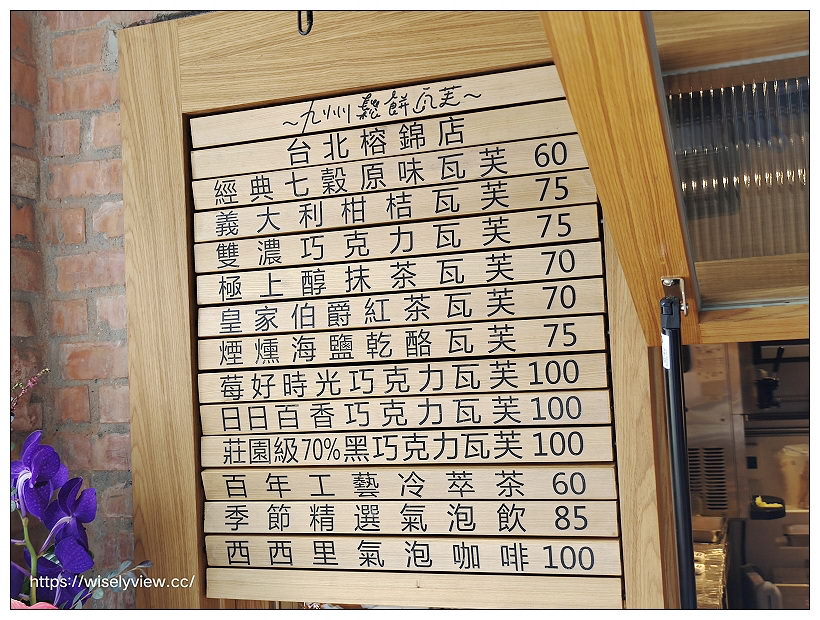 ~九州鬆餅瓦芙~
台北榕錦店
經典七穀原味瓦芙 60
義大利柑桔瓦芙 75
雙濃巧克力瓦芙 75
極上醇抹茶瓦芙 70
皇家伯爵紅茶瓦芙 70
煙燻海鹽乾酪瓦芙 75
莓好時光巧克力瓦芙 100
日日百香巧克力瓦芙 100
莊園級70%黑巧克力瓦芙 100
百年工藝冷萃茶 60
季節精選氣泡飲 85
西西里氣泡咖啡 100
https://wiselyview.cc/